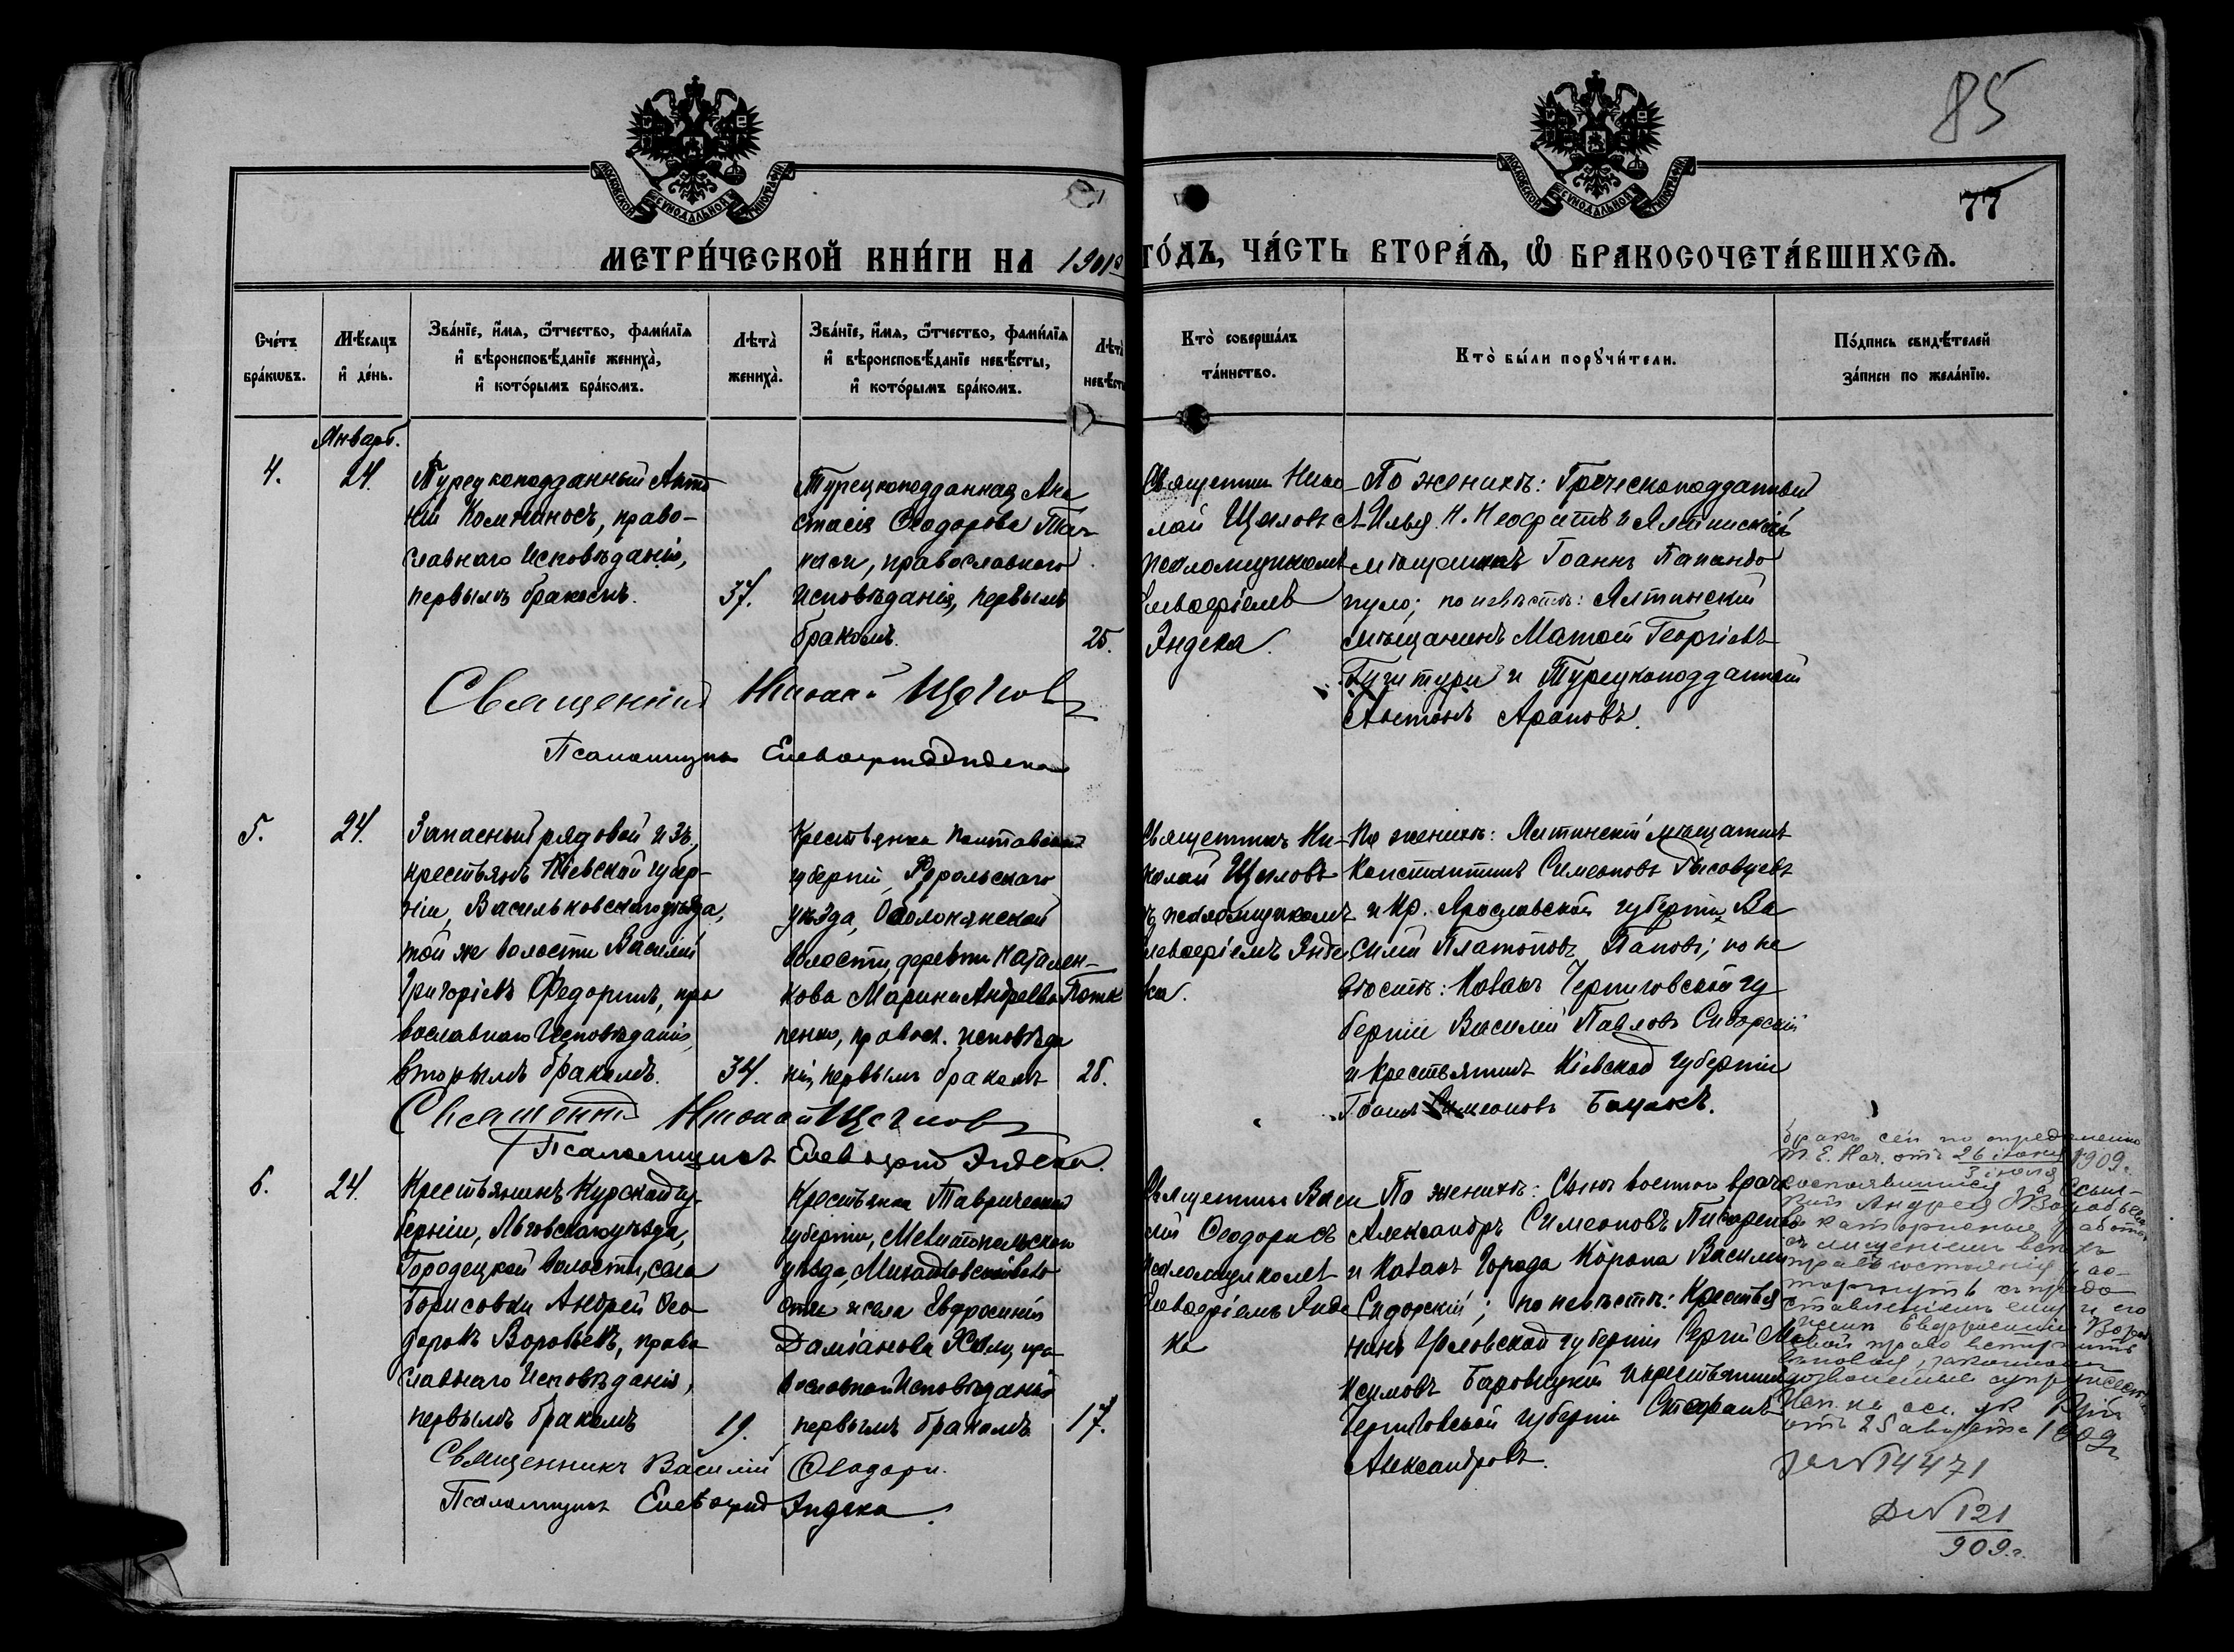 85
77
МОСКОВСКОЙ СѴНОДАЛЬНОЙ ТИПОГРАФІИ
МОСКОВСКОЙ СѴНОДАЛЬНОЙ ТИПОГРАФІИ
МЕТРИ́ЧЕСКОЙ КНИ́ГИ НА 1901й ГО́ДЪ, ЧА́СТЬ ВТОРА́Ѧ, Ѡ҆ БРАКОСОЧЕТА́ВШИХСѦ.
Сче́тъ бра́кѡвъ.
Мѣ́сяцъ и҆ де́нь.
Зва́нїе, и҆́мѧ, ѻ҆́тчество, фами́лїѧ
и҆ вѣроисповѣ́данїе жениха̀,
и҆ кото́рымъ бра́комъ.
Лѣта̀ жениха̀.
Зва́нїе, и҆́мѧ, ѻ҆́тчество, фами́лїѧ
и҆ вѣроисповѣ́данїе невѣ́сты,
и҆ кото́рымъ бра́комъ.
Лѣта̀ невѣ́сты
Кто̀ соверша́лъ
та́инство.
Кто̀ бы́ли порꙋчи́тели.
По́дпись свидѣ́телей
за́писи по жела́нїю.
Январь.
4.
24.
Турецкоподданный Анто
ній Комниносъ, право-
славнаго исповѣданія,
первымъ бракомъ.
37.
Турецкоподданная Ана
стасія Ѳеодорова
православнаго
исповѣданія, первымъ
бракомъ.
25.
Священник Нико
лай Щегловъ съ
псаломщикомъ
Елевѳеріемъ
Индека.
По женихѣ: Греческоподданный
Илья Н. и Ялтинскій
мѣщанинъ Іоаннъ Папандо
пуло; по невѣстѣ: Ялтинскій
мѣщанинъ Матѳей Георгіевъ
и Турецкоподданный
Антонъ Араповъ.
Священникъ Николай Щегловъ
Псаломщикъ Елевѳерій Индека
5.
24.
Запасный рядовой изъ
крестьянъ Кіевской губер-
ніи, Васильковскаго уѣзда,
той же волости Василій
Григоріевъ Федоринъ, пра
вославнаго исповѣданія,
вторымъ бракомъ.
34.
Крестьянка Полтавской
губерніи, Хорольскаго
уѣзда, Оболонянской
волости, деревни Натален-
кова Марина Андреева Потa
пенко, правосл. исповѣда
нія, первымъ бракомъ
28.
Священникъ Ни-
колай Щегловъ
съ псаломщикомъ
Елевѳеріемъ Инде
ка.
По женихѣ: Ялтинскій мѣщанинъ
Константинъ Симеоновъ
и кр. Ярославской губерніи Ва
силій Платоновъ Паповъ; по не
вѣстѣ: Козакъ Черниговской гу
берніи Василій Павловъ Сидорскій
и крестьянинъ Кіевской губерніи
Іоаннъ Симеоновъ
Священникъ Николай Щегловъ
Псаломщикъ Елевѳерій Индека.
6.
24.
Крестьянинъ Курской гу-
берніи, Льговскаго уѣзда,
Городецкой волости, села
Борисовки Андрей Ѳео
доровъ Воробьевъ, право
славнаго исповѣданія,
первымъ бракомъ
19.
Крестьянка Таврической
губерніи, Мелитопольскаго
уѣзда, Михайловской воло
сти и села Евфросинія
Даміанова пра
вославнаго исповѣданія
первымъ бракомъ
17.
Священникъ Васи
лій Ѳеодори съ
псаломщикомъ
Елевѳеріемъ Инде
ка
По женихѣ: Сынъ военнаго врача
Александръ Симеоновъ Писаренко
и Козакъ города Коропа Василій
Сидорскій; по невѣстѣ: Крестья
нинъ Орловской губерніи Сергій Ма
ксимовъ и крестьянинъ
Черниговской губерніи Стефанъ
Александровъ.
Бракъ сей по опредѣленію
Т. Е. Нач. отъ 26 іюня / 3 іюля 1909 г.
состоявшійся за ссыл-
кой Андрея Воробьева
въ каторжныя работы
съ лишеніемъ всѣхъ
правъ состоянія рас-
торгнутъ съ предо
ставленіемъ ему и его
женѣ Евфросиніи Воробь
евой право вступить
въ новый, закономъ
дозволенный супружес
отъ 25 августа 1909 г.
за № 14471
Д № 121
909 г.
Священникъ Василій Ѳеодори.
Псаломщикъ Елевѳерій Индека.